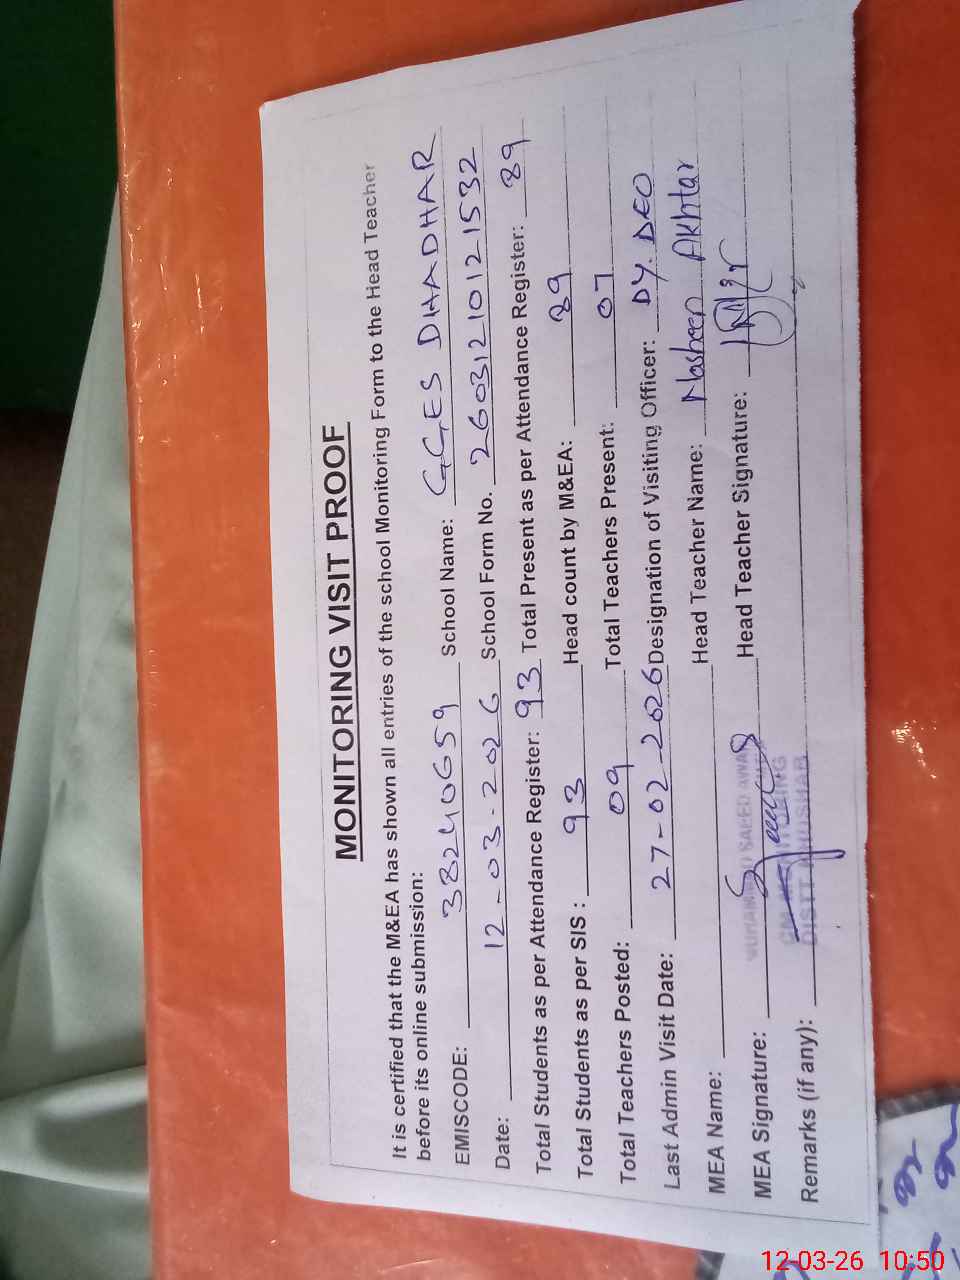 MONITORING VISIT PROOF
It is certified that the M&EA has shown all entries of the school Monitoring Form to the Head Teacher
before its online submission:
EMISCODE: 38240659 School Name: GGES DHADHAR
Date: 12-03-2026 School Form No. 260312101121532
Total Students as per Attendance Register: 93 Total Present as per Attendance Register: 89
Total Students as per SIS : 93 Head count by M&EA: 89
Total Teachers Posted: 09 Total Teachers Present: 07
Last Admin Visit Date: 27-02-2026 Designation of Visiting Officer: DY. DEO
MEA Name: Head Teacher Name: Nosheen Akhtar
MEA Signature: MUHAMMAD SAEED AWAN Head Teacher Signature:
Remarks (if any): DISTT KHUSHAB
12-03-26 10:50